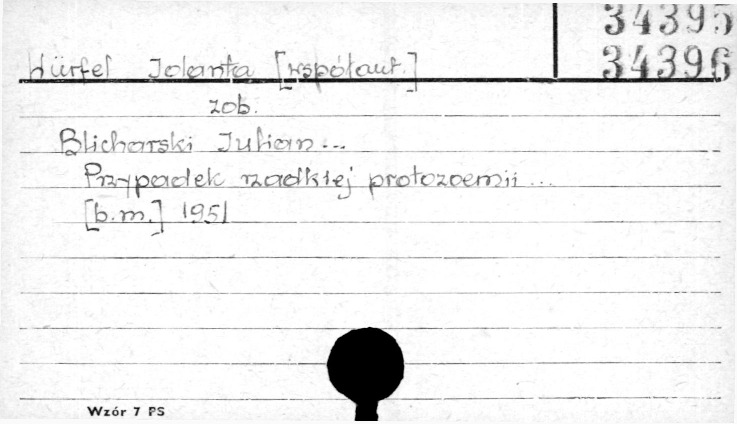 34395
Würfel Jolanta [współaut.] 34396
zob.
Blicharski Julian...
Przypadek rzadkiej protozoemii...
[b.m.] 1951
Wzór 7 PS